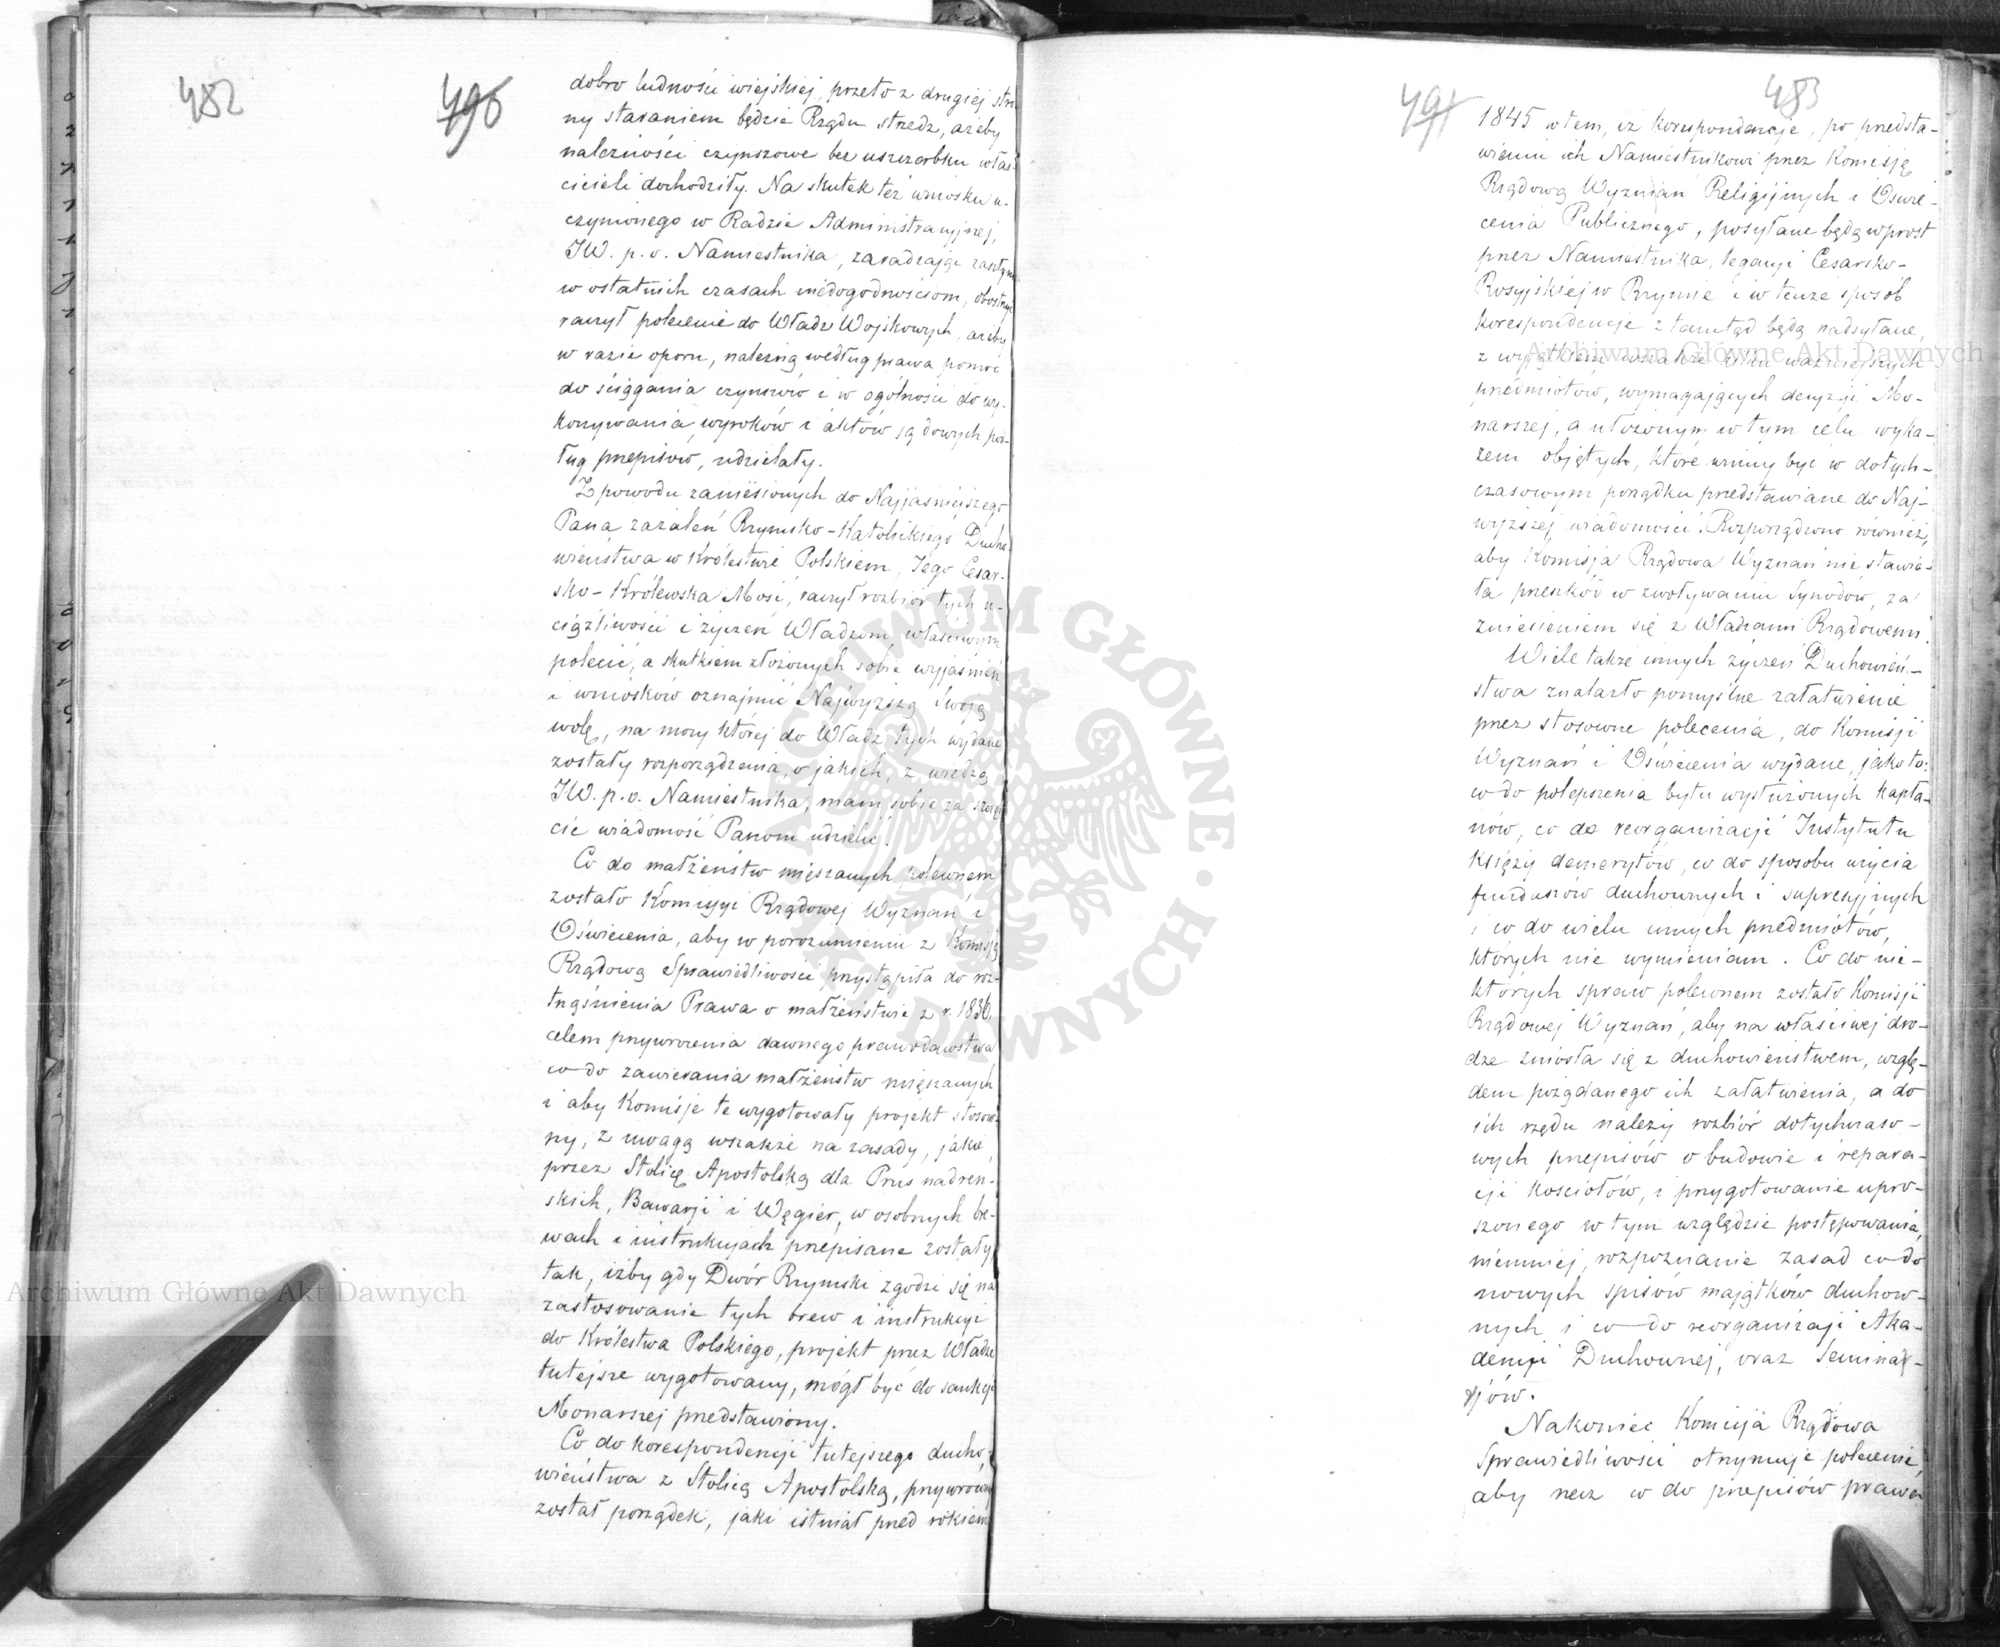 482
490
dobro ludności wiejskiej, przeto z drugiej stro-
ny staraniem będzie Rządu strzedz, ażeby
należności czynszowe bez uszczerbku właś-
cicieli dochodziły. Na skutek też wniosku u-
czynionego w Radzie Administracyjnej,
JW. p.o. Namiestnika, zaradzając zaszłym
w ostatnich czasach niedogodnościom, obostrzyć
raczył polecenie do Władz Wojskowych, ażeby
w razie oporu, należną według prawa pomoc
do ściągania czynszów i w ogólności do wy-
konywania wyroków i aktów sądowych po-
ług przepisów, udzielały.
Z powodu zaniesionych do Najjaśniejszego
Pana zażaleń Rzymsko-Katolickiego Ducho-
wieństwa w Królestwie Polskiem, Jego Cesar-
sko-Królewska Mość, raczył rozbiór tych u-
ciążliwości i życzeń Władzom właściwym
polecić, a skutkiem złożonych sobie wyjaśnień
i wniosków oznajmić Najwyższą Swoją
wolę, na mocy której do Władz tych wydane
zostały rozporządzenia, o jakich, z wiedzą
JW. p.o. Namiestnika, mam sobie za szczęś-
cie wiadomość Panom udzielić.
Co do małżeństw mięszanych polecnem
zostało Komisyi Rządowej Wyznań i
Oświecenia, aby w porozumieniu z Komisją
Rządową Sprawiedliwości przystąpiła do roz-
trząśnienia Prawa o małżeństwie z r. 1836,
celem przywrócenia dawnego prawodawstwa
co do zawierania małżeństw mięszanych
i aby Komisje te wygotowały projekt stosow-
ny, z uwagą wszakże na zasady, jakie,
przez Stolicę Apostolską dla Prus nadreń-
skich, Bawarji i Węgier, w osobnych bre-
wach i instrukcjach przepisane zostały
tak, iżby gdy Dwór Rzymski zgodzi się na
zastosowanie tych brew i instrukcyi
do Królestwa Polskiego, projekt przez Władze
tutejsze wygotowany, mógł być do sankcji
Monarszej przedstawiony.
Co do korespondencji tutejszego ducho-
wieństwa z Stolicą Apostolską, przywrócony
został porządek, jaki istniał przed rokiem
491
483
1845 w tem, iż korespondencje, po przedsta-
wieniu ich Namiestnikowi przez Komisję
Rządową Wyznań Religijnych i Oświe-
cenia Publicznego, posyłane będą wprost
przez Namiestnika, legacyi Cesarsko-
Rosyjskiej w Rzymie i w tenże sposób
korespondencje z tamtąd będą nadsyłane,
z wyjątkiem wszakże kilku ważniejszych
przedmiotów, wymagających decyzji Mo-
narszej, a ułożonym w tym celu wyka-
zem objętych, które winny być w dotych-
czasowym porządku przedstawiane do Naj-
wyższej wiadomości. Rozporządzono również,
aby Komisja Rządowa Wyznań nie stawia-
ła przeszkód w zwoływaniu Synodów, za
zniesieniem się z Władzami Rządowemi.
Wiele także innych życzeń Duchowień-
stwa znalazło pomyślne załatwienie
przez stosowne polecenia, do Komisji
Wyznań i Oświecenia wydane, jako to:
co do polepszenia bytu wysłużonych kapła-
nów, co do reorganizacji Instytutu
księży demerytów, co do sposobu użycia
funduszów duchownych i supresyjnych
i co do wielu innych przedmiotów,
których nie wymieniam. Co do nie-
których spraw polecnem zostało Komisji
Rządowej Wyznań, aby na właściwej dro-
dze zniosła się z duchowieństwem, wzglę-
dem pożądanego ich załatwienia, a do
ich rzędu należy rozbiór dotychczaso-
wych przepisów o budowie i repara-
cji kościołów, i przygotowanie upro-
szonego w tym względzie postępowania,
niemniej, rozpoznanie zasad co do
nowych spisów majątków duchow-
nych i co do reorganizacji Aka-
demji Duchownej, oraz Seminar-
rjów.
Nakoniec Komisja Rządowa
Sprawiedliwości otrzymuje polecenie,
aby rzecz co do przepisów prawa
Archiwum Główne Akt Dawnych
Archiwum Główne Akt Dawnych
ARCHIWUM GŁÓWNE · AKT DAWNYCH ·